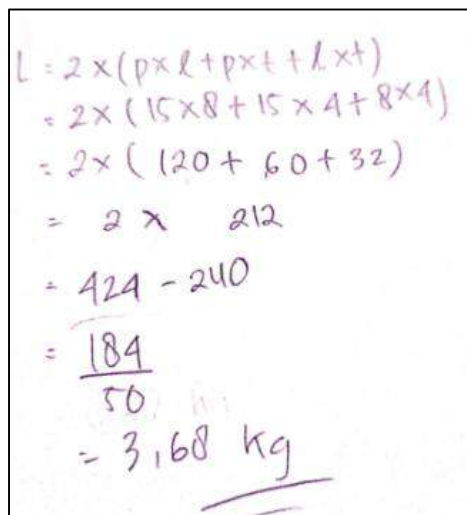 L = 2 x (p x l + p x t + l x t)
= 2 x ( 15 x 8 + 15 x 4 + 8 x 4 )
= 2 x ( 120 + 60 + 32 )
= 2 x 212
= 424 - 240
= 184
50
= 3,68 kg